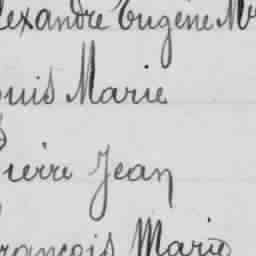 lexandre Eugène M
ouis Marie
ierre Jean
rançois Marie